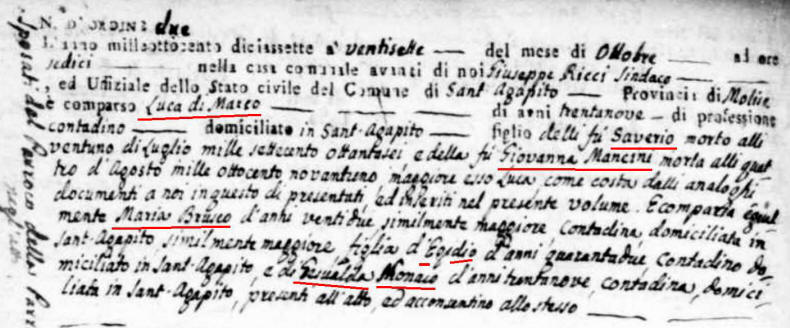 N. D'ORDINE due
L'anno milleottocento diciassette a' ventisette — del mese di Ottobre — ad ore
sedici — nella casa comunale avanti di noi Giuseppe Ricci Sindaco —
, ed Uffiziale dello Stato civile del Comune di Sant-Agapito — Provincia di Molise
è comparso Luca di Marco — di anni trentanove — di professione
contadino — domiciliato in Sant-Agapito — figlio delli fù Saverio morto alli
ventuno di Luglio mille settecento ottantasei e della fù Giovanna Mancini morta alli quat
tro d'Agosto mille ottocento novantuno maggiore esso Luca come costa dalli analoghi
documenti a noi in questo di presentati, ed inseriti nel presente volume. E comparsa egual
mente Maria Bruseo d'anni ventidue similmente maggiore Contadina domiciliata in
Sant-Agapito similmente maggiore figlia d'Egidio d'anni quarantadue Contadino do
miciliato in Sant-Agapito, e di Gesualda Monaco d'anni trentanove, contadina, domici
liata in Sant-Agapito, presenti all'atto, ed acconsentino allo stesso —
Sposati dal Paroco della Parr